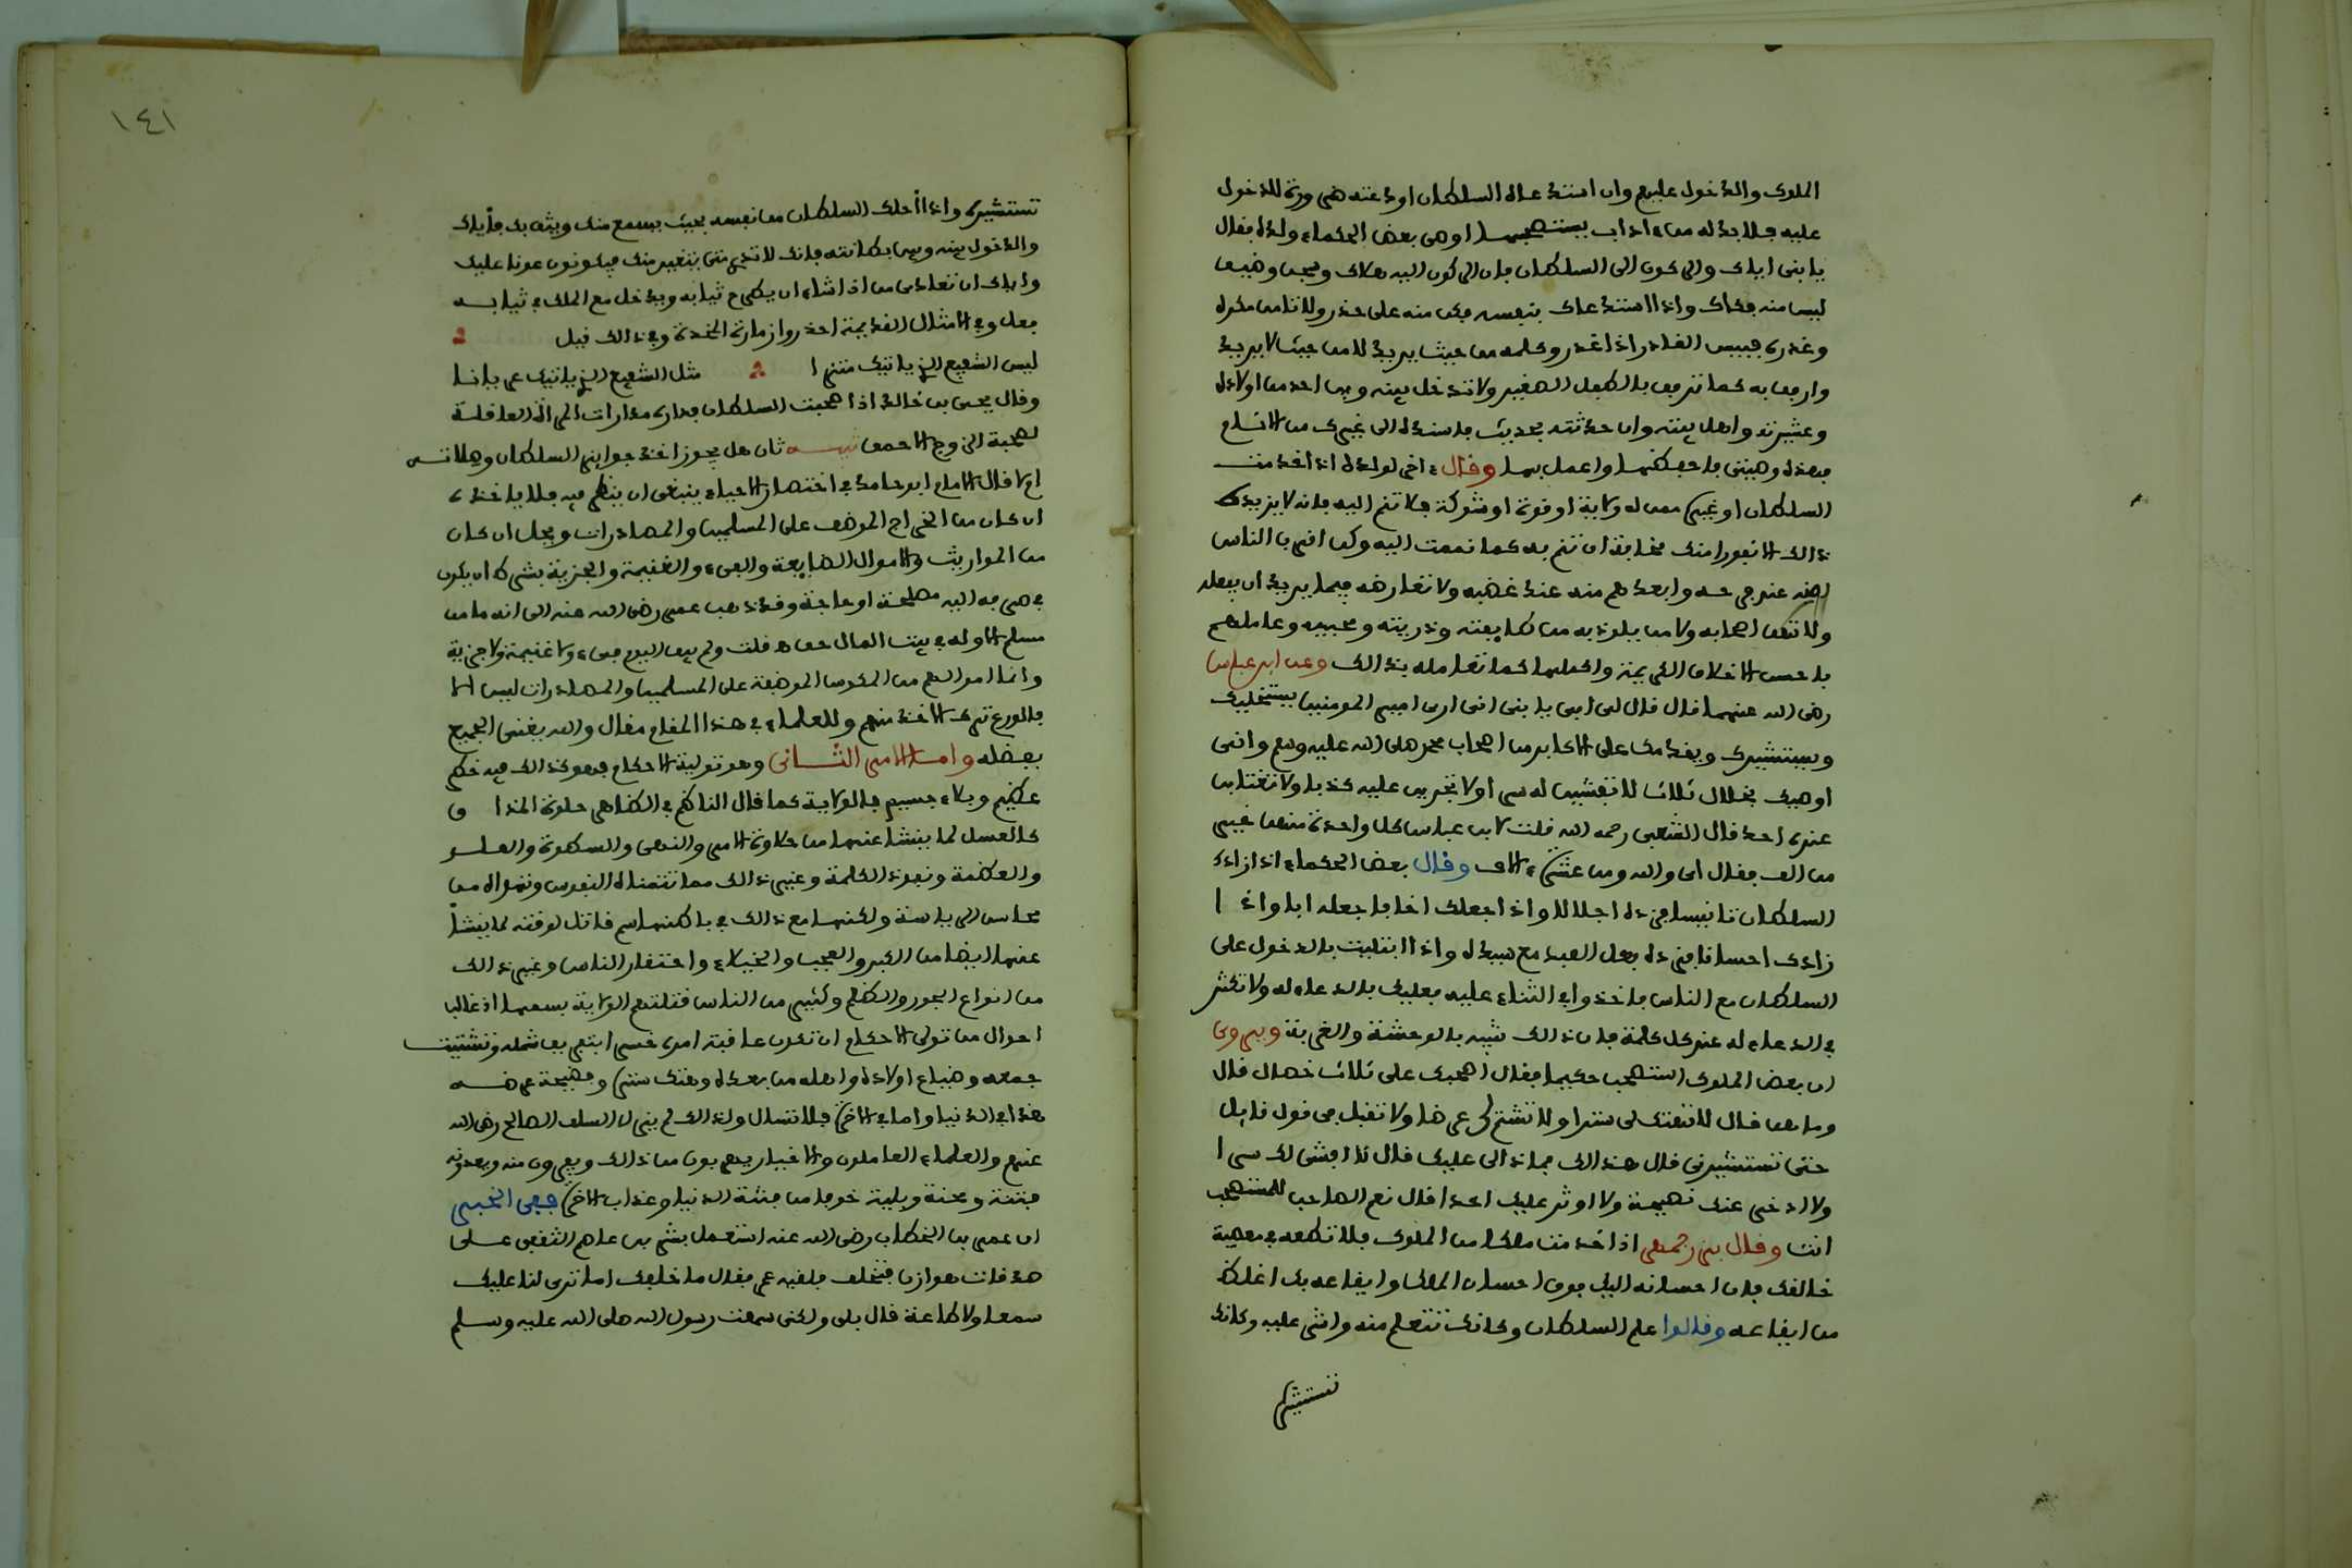 الملوك والدخول عليهم وان استدعاه السلطان او دعته ضرورة للدخول
عليه فلا بد له من اداب يستصحبها اوصى بعض الحكماء ولده فقال
يا بني اياك والركون الى السلطان فان الركون اليه هلاك ومحن وضيم
ليس منه فكاك واذا استدعاك بنفسه فكن منه على حذر ولا تامن مكره
وغدره فبيس القادر اذا غدر وكلمه من حيث يريد لا من حيث لا يريد
وارفق به كما ترفق بالطفل الصغير ولا تدخل بينه وبين احد من اولاده
وعشيرته واهل بيته وان حدثته بحديث فاسنده الى غيرك من الانام
فهذه وصيتي فاحفظها واعمل بها وقال ءاخر لولده اذا خدمت
السلطان او غيره ممن له ولاية او قوة او شوكة فلا تنم اليه فانه لا يزيده
ذالك الا نفورا منك مخافة ان تنم به كما نممت اليه وكن اقرب الناس
اليه عند فرحه وابعدهم منه عند غضبه ولا تعارضه فيما يريد ان يفعله
ولا تنم اصحابه ولا من يلوذ به من طايفته وذريته ومحبيه وعاملهم
باحسن الاخلاق الكريمة واكملها كما تعامله بذالك وعن ابن عباس
رضي الله عنهما قال قال لي ابي يا بني اني ارى امير المومنين يستخليك
ويستشيرك ويقدمك على الاكابر من اصحاب محمد صلى الله عليه وسلم واني
اوصيك بخلال ثلاث لا تفشين له سرا ولا تجربن عليه كذبا ولا تغتابن
عنده احدا قال الشعبي رحمه الله قلت لابن عباس كل واحدة منهن خير
من الف فقال اي والله ومن عشرة ءالاف وقال بعض الحكماء اذا زادك
السلطان تانيسا فزده اجلالا واذا جعلك اخا فاجعله ابا واذا
زادك احسانا فزده فعل العبد مع سيده واذا ابتليت بالدخول على
السلطان مع الناس فاخذوا في الثناء عليه فعليك بالدعاء له ولا تكثر
في الدعاء له عند كل كلمة فان ذالك شبيه بالوحشة والغربة ويروى
ان بعض الملوك استصحب حكيما فقال اصحبك على ثلاث خصال قال
وما هن قال لا تهتك لي سترا ولا تشتم لي عرضا ولا تقبل في قول قايل
حتى تستشيرني قال هذا لك فما ذا لي عليك قال لا افشي لك سرا
ولا ادخر عنك نصيحة ولا اوثر عليك احدا قال نعم الصاحب للمستصحب
انت وقال بزرجمهر اذا خدمت ملكا من الملوك فلا تطعه في معصية
خالقك فان احسانه اليك فوق احسان الملك وايقاعه بك اغلظ
من ايقاعه وقالوا علم السلطان وكانك تتعلم منه واشر عليه وكانك
تستشيره
١٤١
تستشيره واذا احلك السلطان من نفسه بحيث يسمع منك ويثق بك فاياك
والدخول بينه وبين بطانته فانك لا تدري متى يتغير منك فيكونون عونا عليك
واياك ان تعادي من اذا شاء ان يطرح ثيابه ويدخل مع الملك في ثيابه
فعل وفي الامثال القديمة احذروا زمارة المخدة وفي ذالك قيل
ليس الشفيع الذي ياتيك متزرا مثل الشفيع الذي ياتيك عريانا
وقال يحيى بن خالد اذا صحبت السلطان فداره مدارات المراة العاقلة
لصحبة الزوج الاحمق تنبيه ثان هل يجوز اخذ جوايز السلطان وصلاته
ام لا قال الامام ابو حامد في اختصار الاحياء ينبغي ان ينظر فيه فلا ياخذه
ان كان من الخراج الموظف على المسلمين والمصادرات ويحل ان كان
من المواريث والاموال الضايعة والفيء والغنيمة والجزية بشرط ان يكون
في صرفه اليه مصلحة او حاجة وقد ذهب عمر رضي الله عنه الى انه ما من
مسلم الا وله في بيت المال حق اه قلت ولم يبق اليوم فيء ولا غنيمة ولا جزية
وانما اموالهم من المكوس الموظفة على المسلمين والمصادرات ليس الا
فالورع ترك الاخذ منهم وللعلماء في هذا المقام مقال والله يغني الجميع
بفضله واما الامر الثاني وهو تولية الاحكام فهو كذالك فيه خطر
عظيم وبلاء جسيم فالولاية كما قال الناظم في الظاهر حلوة المذاق
كالعسل لما ينشا عنها من حلاوة الامر والنهي والسطوة والعلو
والعظمة ونفوذ الكلمة وغير ذالك مما تتمناه النفوس وتهواه من
محاسن الرياسة ولكنها مع ذالك في باطنها سم قاتل لوقته لما ينشا
عنها ايضا من الكبر والعجب والخيلاء واحتقار الناس وغير ذالك
من انواع الجور والظلم وكثير من الناس قتلتهم الولاية بسمها اذ غالب
احوال من تولى الاحكام ان تكون عاقبة امره خسرا بتفريق شمله وتشتيت
جمعه وضياع اولاده واهله من بعده وهتك ستره وفضيحة عرضه
هذا في الدنيا واما في الاخرة فلا تسال ولذالك لم يزل السلف الصالح رضي الله
عنهم والعلماء العاملون والاخيار يهربون من ذالك ويفرون منه ويعدونه
فتنة ومحنة وبلية خوفا من فتنة الدنيا وعذاب الاخرة ففي الخبر
ان عمر بن الخطاب رضي الله عنه استعمل بشر بن عاصم الثقفي على
صدقات هوازن فتخلف فلقيه عمر فقال ما خلفك اما ترى لنا عليك
سمعا ولا طاعة قال بلى ولكني سمعت رسول الله صلى الله عليه وسلم